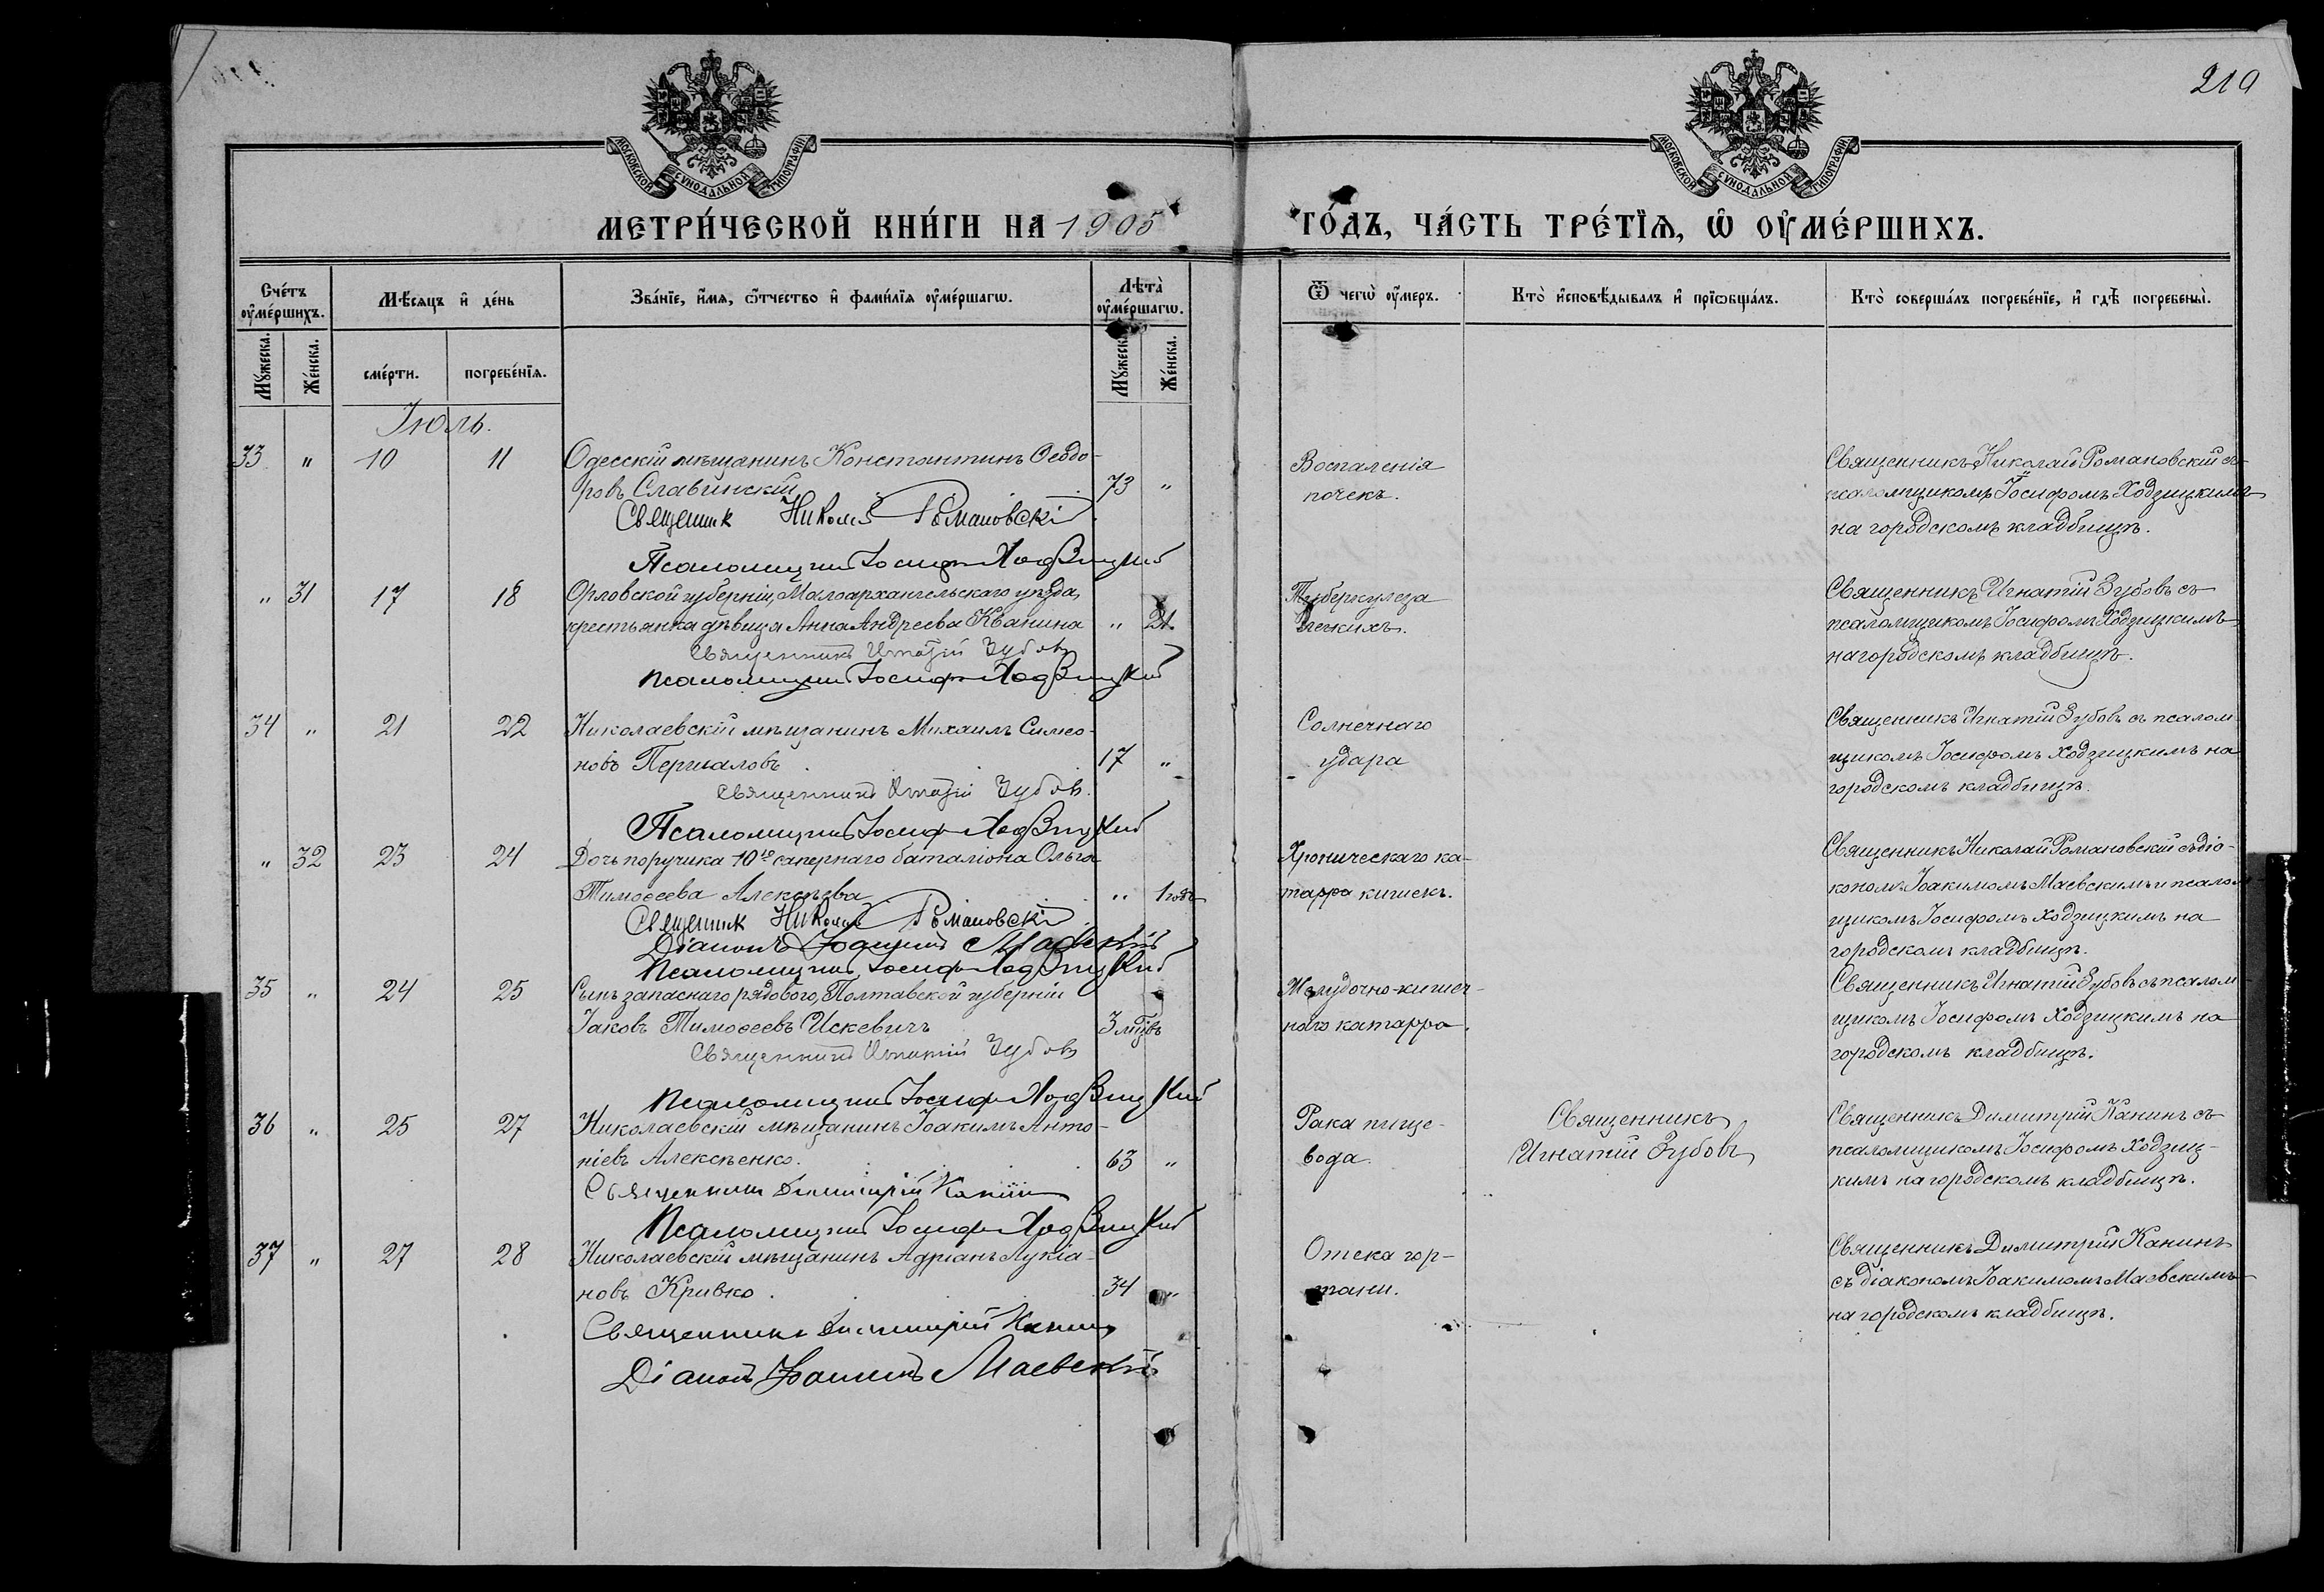 219
МОСКОВСКОЙ СУНОДАЛЬНОЙ ТИПОГРАФІИ
МОСКОВСКОЙ СУНОДАЛЬНОЙ ТИПОГРАФІИ
МЕТРИ́ЧЕСКОЙ КНИ́ГИ НА 1905 ГО́ДЪ, ЧА́СТЬ ТРЕ́ТІѦ, Ѡ҆ ОУ҆МЕ́РШИХЪ.
Сче́тъ оу҆ме́ршихъ.
Мѣ́сяцъ и҆ де́нь
Зва́нїе, и҆́мя, ѻ҆́тчество и҆ фами́лїя оу҆ме́ршагѡ.
Лѣ́та оу҆ме́ршагѡ.
Ѿ чегѡ̀ оу҆́меръ.
Кто̀ и҆сповѣ́дывалъ и҆ прїѡбща́лъ.
Кто̀ соверша́лъ погребе́нїе, и҆ гдѣ̀ погребены̀.
Мꙋ́жеска.
Же́нска.
сме́рти.
погребе́нїя.
Мꙋ́жеска.
Же́нска.
Іюль.
33 " 10 11 Одесскій мѣщанинъ Константинъ Ѳеодо-
ровъ Славинскій 73 "
Священник Николай Романовскій
Псаломщикъ Іосифъ Ходзицкій
Воспаленія
почекъ.
Священникъ Николай Романовскій съ
псаломщикомъ Іосифомъ Ходзицкимъ
на городскомъ кладбищѣ.
" 31 17 18 Орловской губерніи, Малоархангельскаго уѣзда,
крестьянка дѣвица Анна Андреева Кванина " 21.
Священникъ Игнатій Зубовъ
Псаломщикъ Іосифъ Ходзицкій
Туберкулеза
легкихъ.
Священникъ Игнатій Зубовъ съ
псаломщикомъ Іосифомъ Ходзицкимъ
на городскомъ кладбищѣ.
34 " 21 22 Николаевскій мѣщанинъ Михаилъ Симео-
новъ 17 "
Священникъ Игнатій Зубов.
Псаломщикъ Іосифъ Ходзицкій
Солнечнаго
удара
Священникъ Игнатій Зубовъ съ псалом
щикомъ Іосифомъ Ходзицкимъ на
городскомъ кладбищѣ.
" 32 23 24 Дочь поручика 10го сапернаго баталіона Ольга
Тимоѳеева Алексѣева " 1 годъ
Священник Николай Романовскій
Діаконъ Іоакимъ Маевскій
Псаломщикъ Іосифъ Ходзицкій
Хроническаго ка-
тарра кишекъ.
Священникъ Николай Романовскій съ діа-
кономъ Іоакимомъ Маевскимъ и псалом
щикомъ Іосифомъ Ходзицкимъ на
городскомъ кладбищѣ.
35 " 24 25 Сынъ запаснаго рядового, Полтавской губерніи
Іаковъ Тимоѳеевъ Искевичъ 3 мѣсяцовъ
Священникъ Игнатій Зубовъ
Псаломщикъ Іосифъ Ходзицкій
Желудочно-кишеч-
наго катарра.
Священникъ Игнатій Зубовъ съ псалом-
щикомъ Іосифомъ Ходзицкимъ на
городскомъ кладбищѣ.
36 " 25 27 Николаевскій мѣщанинъ Іоакимъ Анто-
ніевъ Алексѣенко. 63 "
Священникъ Димитрій Канинъ
Псаломщикъ Іосифъ Ходзицкій
Рака пище-
вода.
Священникъ
Игнатій Зубовъ
Священникъ Димитрій Канинъ съ
псаломщикомъ Іосифомъ Ходзиц-
кимъ на городскомъ кладбищѣ.
37 " 27 28 Николаевскій мѣщанинъ Адріанъ Лукіа-
новъ Кривко. 34 "
Священникъ Димитрій Канинъ
Діаконъ Іоакимъ Маевскій
Отека гор-
тани.
Священникъ Димитрій Канинъ
съ діакономъ Іоакимомъ Маевскимъ
на городскомъ кладбищѣ.